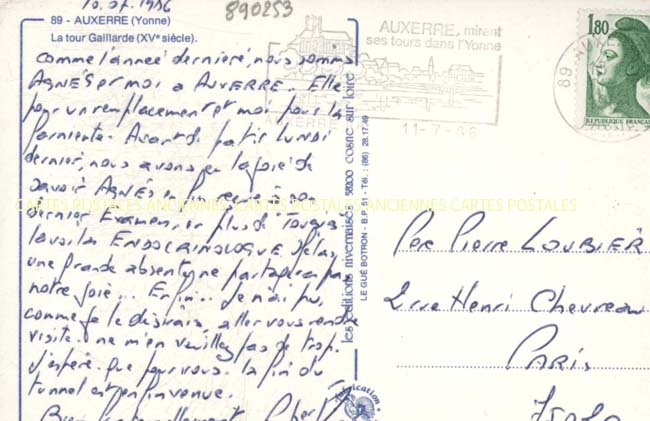 10.07.1986
890253
89 - AUXERRE (Yonne)
La tour Gaillarde (XVe siècle).
comme l'année dernière, nous sommes
AGNÈS et moi à AUXERRE. Elle
pour un remplacement et moi pour la
farniente. Avant de partir LUNDI
dernier, nous avons eu la joie de
savoir AGNÈS
dernier Examen, plus de
la voilà ENDOCRINOLOGUE. Hélas,
une grande absente ne partagera pas
notre joie... Enfin.. Je n'ai pu,
comme je le désirais, aller vous rendre
visite. ne m'en veuillez pas de trop.
J'espère que pour vous la fin du
tunnel est enfin venue.
Bien
les éditions nivernaises 58200 cosne sur loire
LE GUÉ BOTRON - B.P. - Tél. : (86) 28.17.49
fabrication
AUXERRE, mirant
ses tours dans l'Yonne
AUXERRE
11-7-86
1,80
REPUBLIQUE FRANÇAISE
89 AUXE
CARTES POSTALES ANCIENNES CARTES POSTALES ANCIENNES CARTES POSTALES
Père Pierre LOUBIÈR
2 rue Henri Chevreau
PARIS